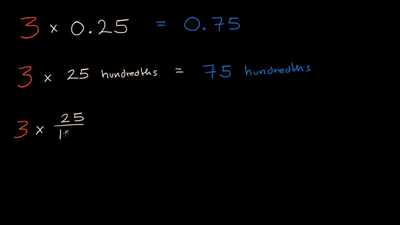 3 × 0.25 = 0.75
3 × 25 hundredths = 75 hundredths
3 × 25/1